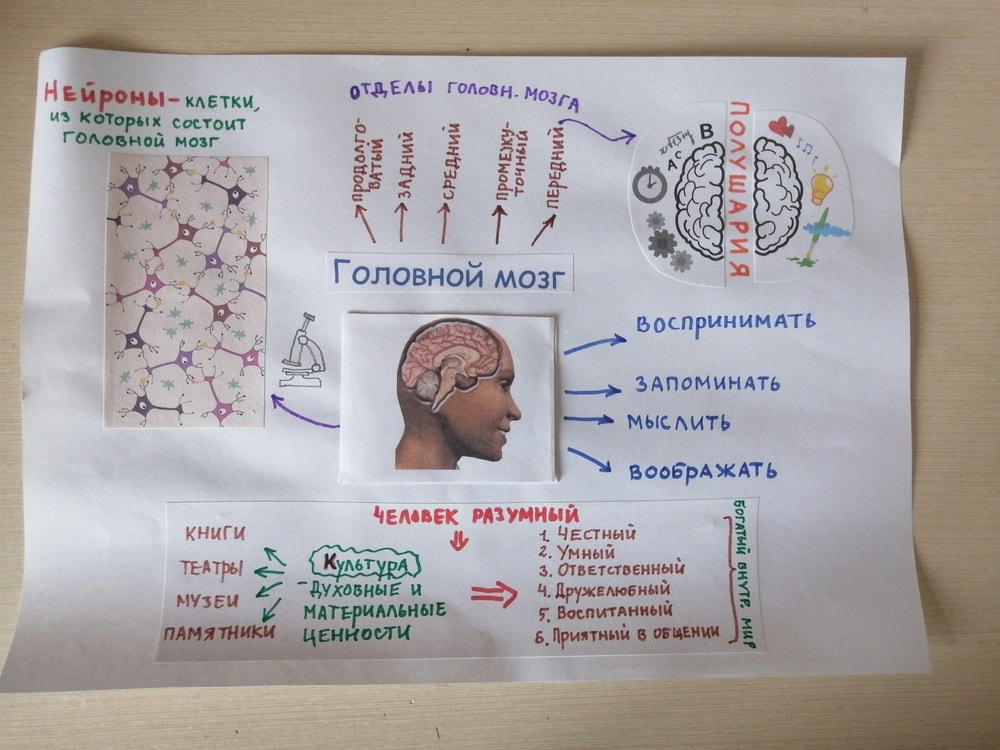 Нейроны- клетки,
из которых состоит
головной мозг
отделы головн. мозга
продолго-
ватый
задний
средний
промежу-
точный
передний
ПОЛУШАРИЯ
B
A C
Головной мозг
воспринимать
запоминать
мыслить
воображать
Человек разумный
книги
театры
музеи
памятники
Культура
- духовные и
материальные
ценности
1. Честный
2. Умный
3. Ответственный
4. Дружелюбный
5. Воспитанный
6. Приятный в общении
Богатый внутр. мир